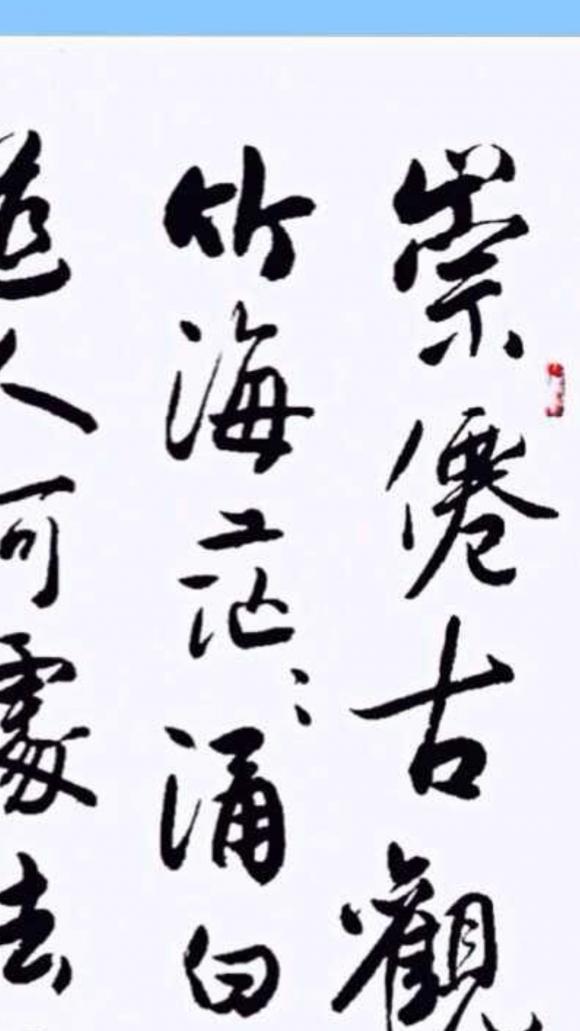 崇僊古觀
竹海茫〻涌白
道人何處去